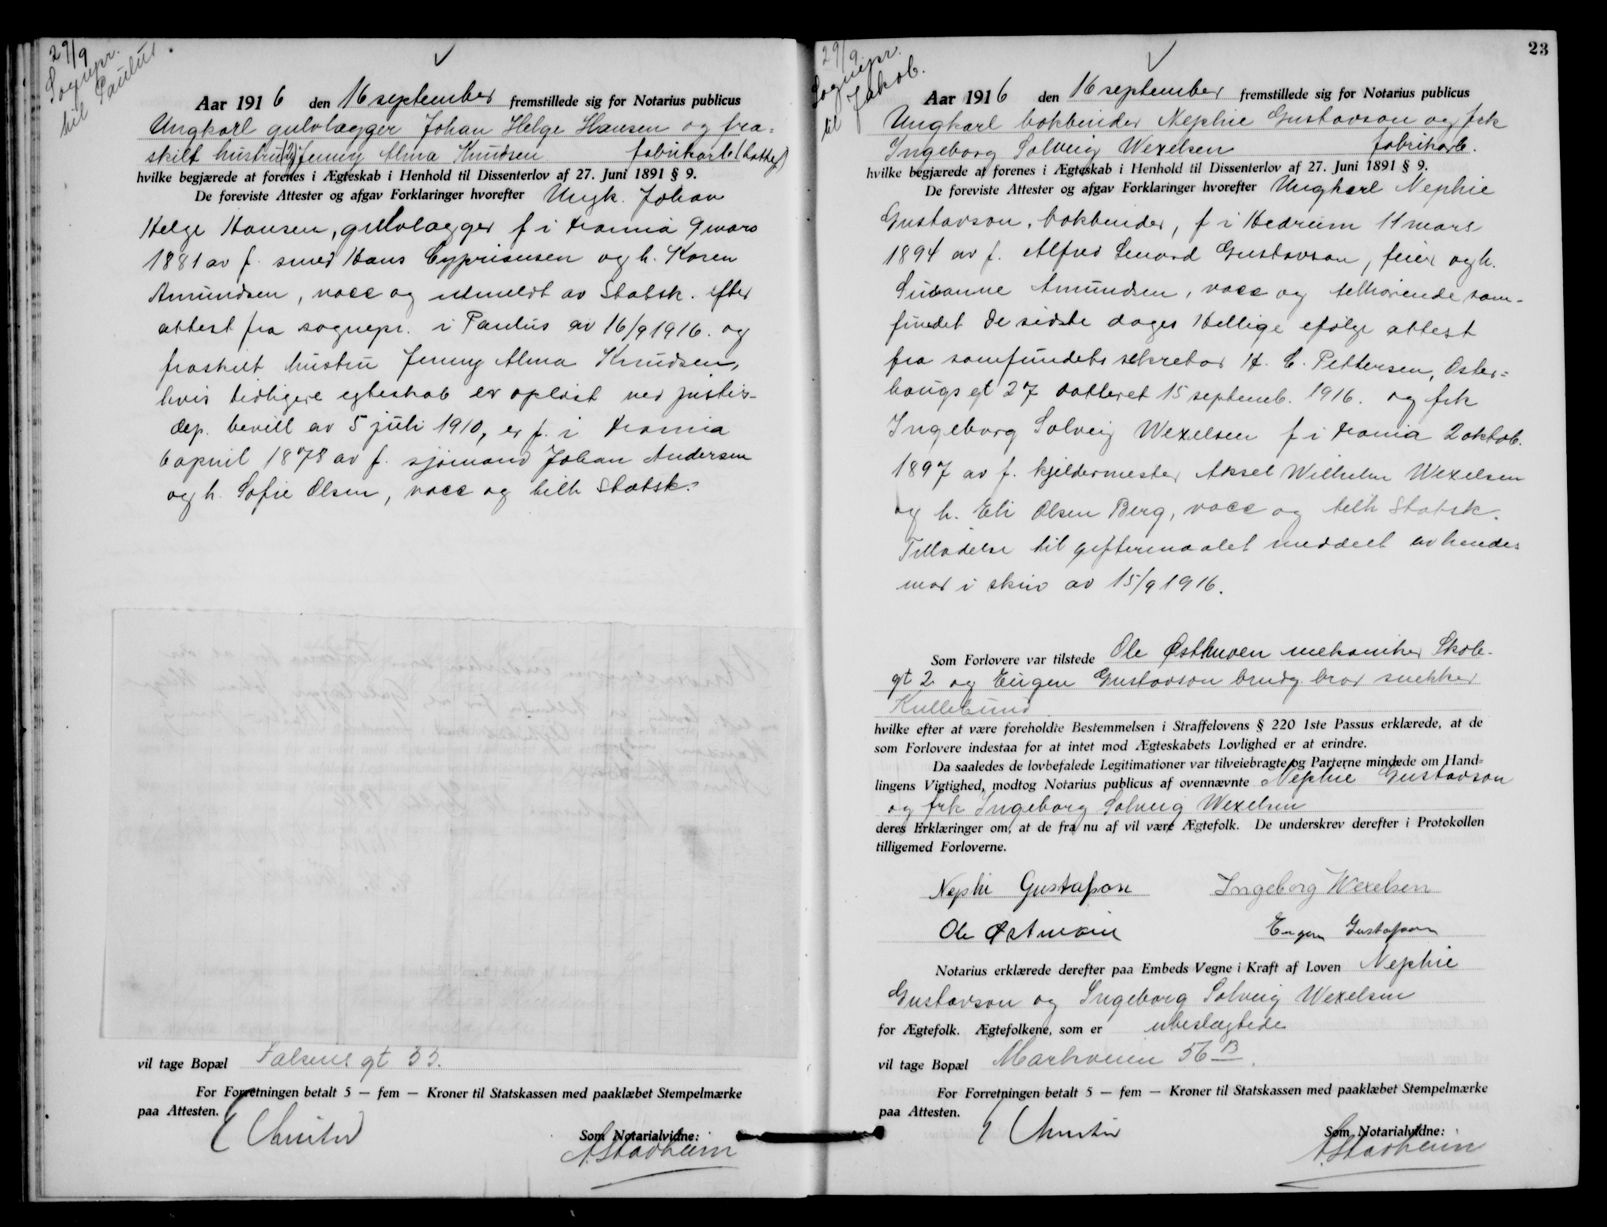 29/9
Sognepr.
til Paulus.
Aar 1916 den 16 september fremstillede sig for Notarius publicus
Ungkarl gulvlægger Johan Helge Hansen og fra=
skilt hustru (2) Jenny Alma Knudsen fabrikarb. (hatte)
hvilke begjærede at forenes i Ægteskab i Henhold til Dissenterlov af 27. Juni 1891 § 9.
De foreviste Attester og afgav Forklaringer hvorefter Ungk. Johan
Helge Hansen, gulvlægger f i Krania 9 mars
1881 av f. smed Hans Cyprisensen og h. Karen
Amundsen, vacc og utmeldt av Statsk. efter
attest fra sognepr. i Paulus av 16/9 1916. og
fraskilt hustru Jenny Alma Knudsen,
hvis tidligere egteskab er opløst ved justis-
dep. bevill av 5 juli 1910, er f. i Krania
6 april 1878 av f. sjømand Johan Andersen
og h. Sofie Olsen, vacc og tilh Statsk.
vil tage Bopæl Falsens gt 33.
For Forretningen betalt 5 — fem — Kroner til Statskassen med paaklæbet Stempelmærke
paa Attesten.
Som Notarialvidne:
A. Stadheim
23
29/9
Sognepr.
til Jakob.
Aar 1916 den 16 september fremstillede sig for Notarius publicus
Ungkarl bokbinder Nephie Gustavson og frk
Ingeborg Solveig Wexelsen fabrikarb.
hvilke begjærede at forenes i Ægteskab i Henhold til Dissenterlov af 27. Juni 1891 § 9.
De foreviste Attester og afgav Forklaringer hvorefter Ungkarl Nephie
Gustavson, bokbinder, f i Hedrum 11 mars
1894 av f. Alfred Lenard Gustavson, feier og h.
Susanne Amundsen, vacc og tilhørende sam-
fundet de sidste dages Hellige efølge attest
fra samfundets sekretær H. C. Pettersen, Oster=
haugs gt 27 datteret 15 septemb. 1916. og frk
Ingeborg Solveig Wexelsen f i Krania 2 oktob.
1897 av f. kjeldermester Aksel Wilhelm Wexelsen
og h. Eli Olsen Berg, vacc og tilh Statsk.
Tilladelse til giftermaalet meddelt av hendes
mor i skriv av 15/9 1916.
Som Forlovere var tilstede Ole Østmoen mekaniker Skole-
gt 2 og Eugen Gustavson brudg bror snekker
Kullebund
hvilke efter at være foreholdte Bestemmelsen i Straffelovens § 220 1ste Passus erklærede, at de
som Forlovere indestaa for at intet mod Ægteskabets Lovlighed er at erindre.
Da saaledes de lovbefalede Legitimationer var tilveiebragte og Parterne mindede om Hand-
lingens Vigtighed, modtog Notarius publicus af ovennævnte Nephie Gustavson
og frk Ingeborg Solveig Wexelsen
deres Erklæringer om, at de fra nu af vil være Ægtefolk. De underskrev derefter i Protokollen
tilligemed Forloverne.
Nephi Gustafson Ingeborg Wexelsen
Ole Østmoen Eugen Gustafson
Notarius erklærede derefter paa Embeds Vegne i Kraft af Loven Nephie
Gustavson og Ingeborg Solveig Wexelsen
for Ægtefolk. Ægtefolkene, som er ubeslægtede
vil tage Bopæl Markveien 56 B.
For Forretningen betalt 5 — fem — Kroner til Statskassen med paaklæbet Stempelmærke
paa Attesten.
Som Notarialvidne:
A. Stadheim